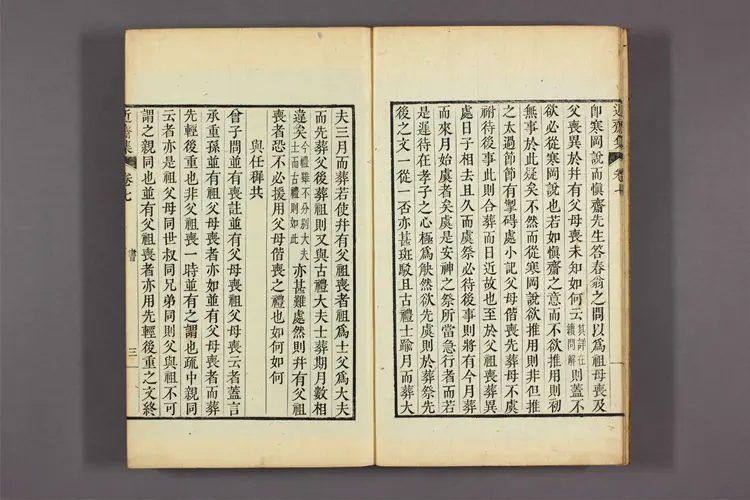 近齋集 卷七
卽寒岡說而愼齋先生答春翁之問以爲祖母喪及
父喪異於幷有父母喪未知如何云其詳在疑問解則蓋不
欲必從寒岡說也若如愼齋之意而不欲推用則初
無事於此疑矣不然而從寒岡說欲推用則非但推
之太過節節有掣碍處小記父母偕喪先葬母不虞
祔待後事此則合葬而日近故也至於父祖喪葬異
處日子相去且久而虞祭必待後事則將有今月葬
而來月始虞者矣虞是安神之祭所當急行者而若
是遲待在孝子之心極爲觖然欲先虞則於葬祭先
後之文一從一否亦甚斑駁且古禮士踰月而葬大
夫三月而葬若使幷有父祖喪者祖爲士父爲大夫
而先葬父後葬祖則又與古禮大夫士葬期月數相
違矣今禮雖不分別大夫士而古禮則如此亦甚難處然則幷有父祖
喪者恐不必援用父母偕喪之禮也如何如何
與任穉共
曾子問並有喪註並有父母喪祖父母喪云者蓋言
承重孫並有祖父母喪者亦如並有父母喪者而葬
先輕後重也非父祖喪一時並有之謂也疏中親同
云者亦是祖父母同世叔同兄弟同則父與祖不可
謂之親同也並有父祖喪者亦用先輕後重之文終
近齋集 卷七 書 三